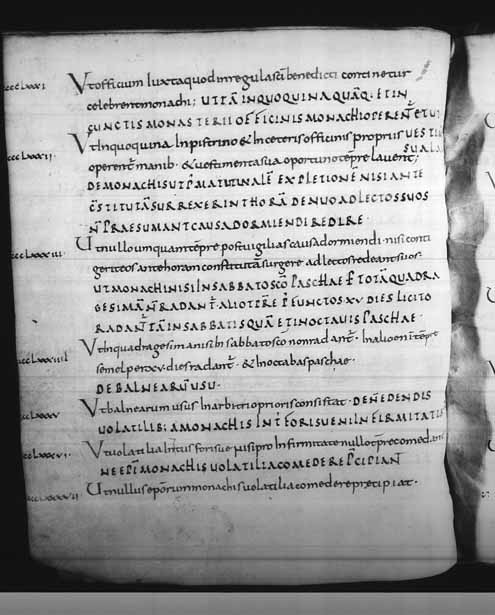 cccLxxxI Vt officium Iuxta quod in regula sci benedicti continetur
celebrent monachi; UT TĀ IN QUOQUINA QUĀQ· ET IN
CUNCTIS MONASTERII OFFICINIS MONACHI OPERENT̄ ET UT
cccLxxxII Vt In quoquina In pistrino & In ceteris officinis propriis UESTI
operent̄ manib· & uestimenta sua oportuno tēpre lauent; SUA LA
DE MONACHIS UT P̄ MATUTINALĒ EXPLETIONĒ NISI ANTE
C̄STITUTĀ SURREXERINT HORĀ DENUO AD LECTOS SUOS
N̄ PRAESUMANT CAUSA DORMIENDI REDIRE·
cccLxxxIII Ut nullo umquam tēpre post uigilias causa dormiendi· nisi conti
gerit eos ante horam constitutā surgere ad lectos redeant suos·
UT MONACHI NISI IN SABBATO SCŌ PASCHAE P̄ TOTĀ QUADRA
GESIMĀ N̄ RADANT̄· ALIO TP̄RE P̄ EUNCTOS XV DIES LICITO
RADANT̄ TĀ IN SABBATIS QUĀ ET IN OCTAUIS PASCHAE·
cccLxxxIIII Vt In quadragesima nisi In sabbato scō non radant̄· In alio ū tēpre
semel per xv· dies radant̄· & In octabas paschae·
DE BALNEARŪ USU·
cccLxxxv Vt balnearum usus In arbitrio prioris consistat· DE N̄ EDENDIS
UOLATILIB; A MONACHIS INT̄ FORISUE NI IN FIRMITATIS
cccLxxxvI· Vt uolatilia Intus forisue nisi pro Infirmitate nullo tp̄re comedant
NE EPĪ MONACHIS UOLATILIA COMEDERE P̄CIPIANT̄
cccLxxxvII Ut nullus ep̄orum monachis uolatilia comedere precipiat·